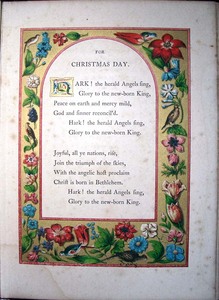 FOR
CHRISTMAS DAY.
HARK! the herald Angels sing,
Glory to the new-born King,
Peace on earth and mercy mild,
God and sinner reconcil'd.
Hark! the herald Angels sing,
Glory to the new-born King.
Joyful, all ye nations, rise,
Join the triumph of the skies,
With the angelic host proclaim
Christ is born in Bethlehem.
Hark! the herald Angels sing,
Glory to the new-born King.